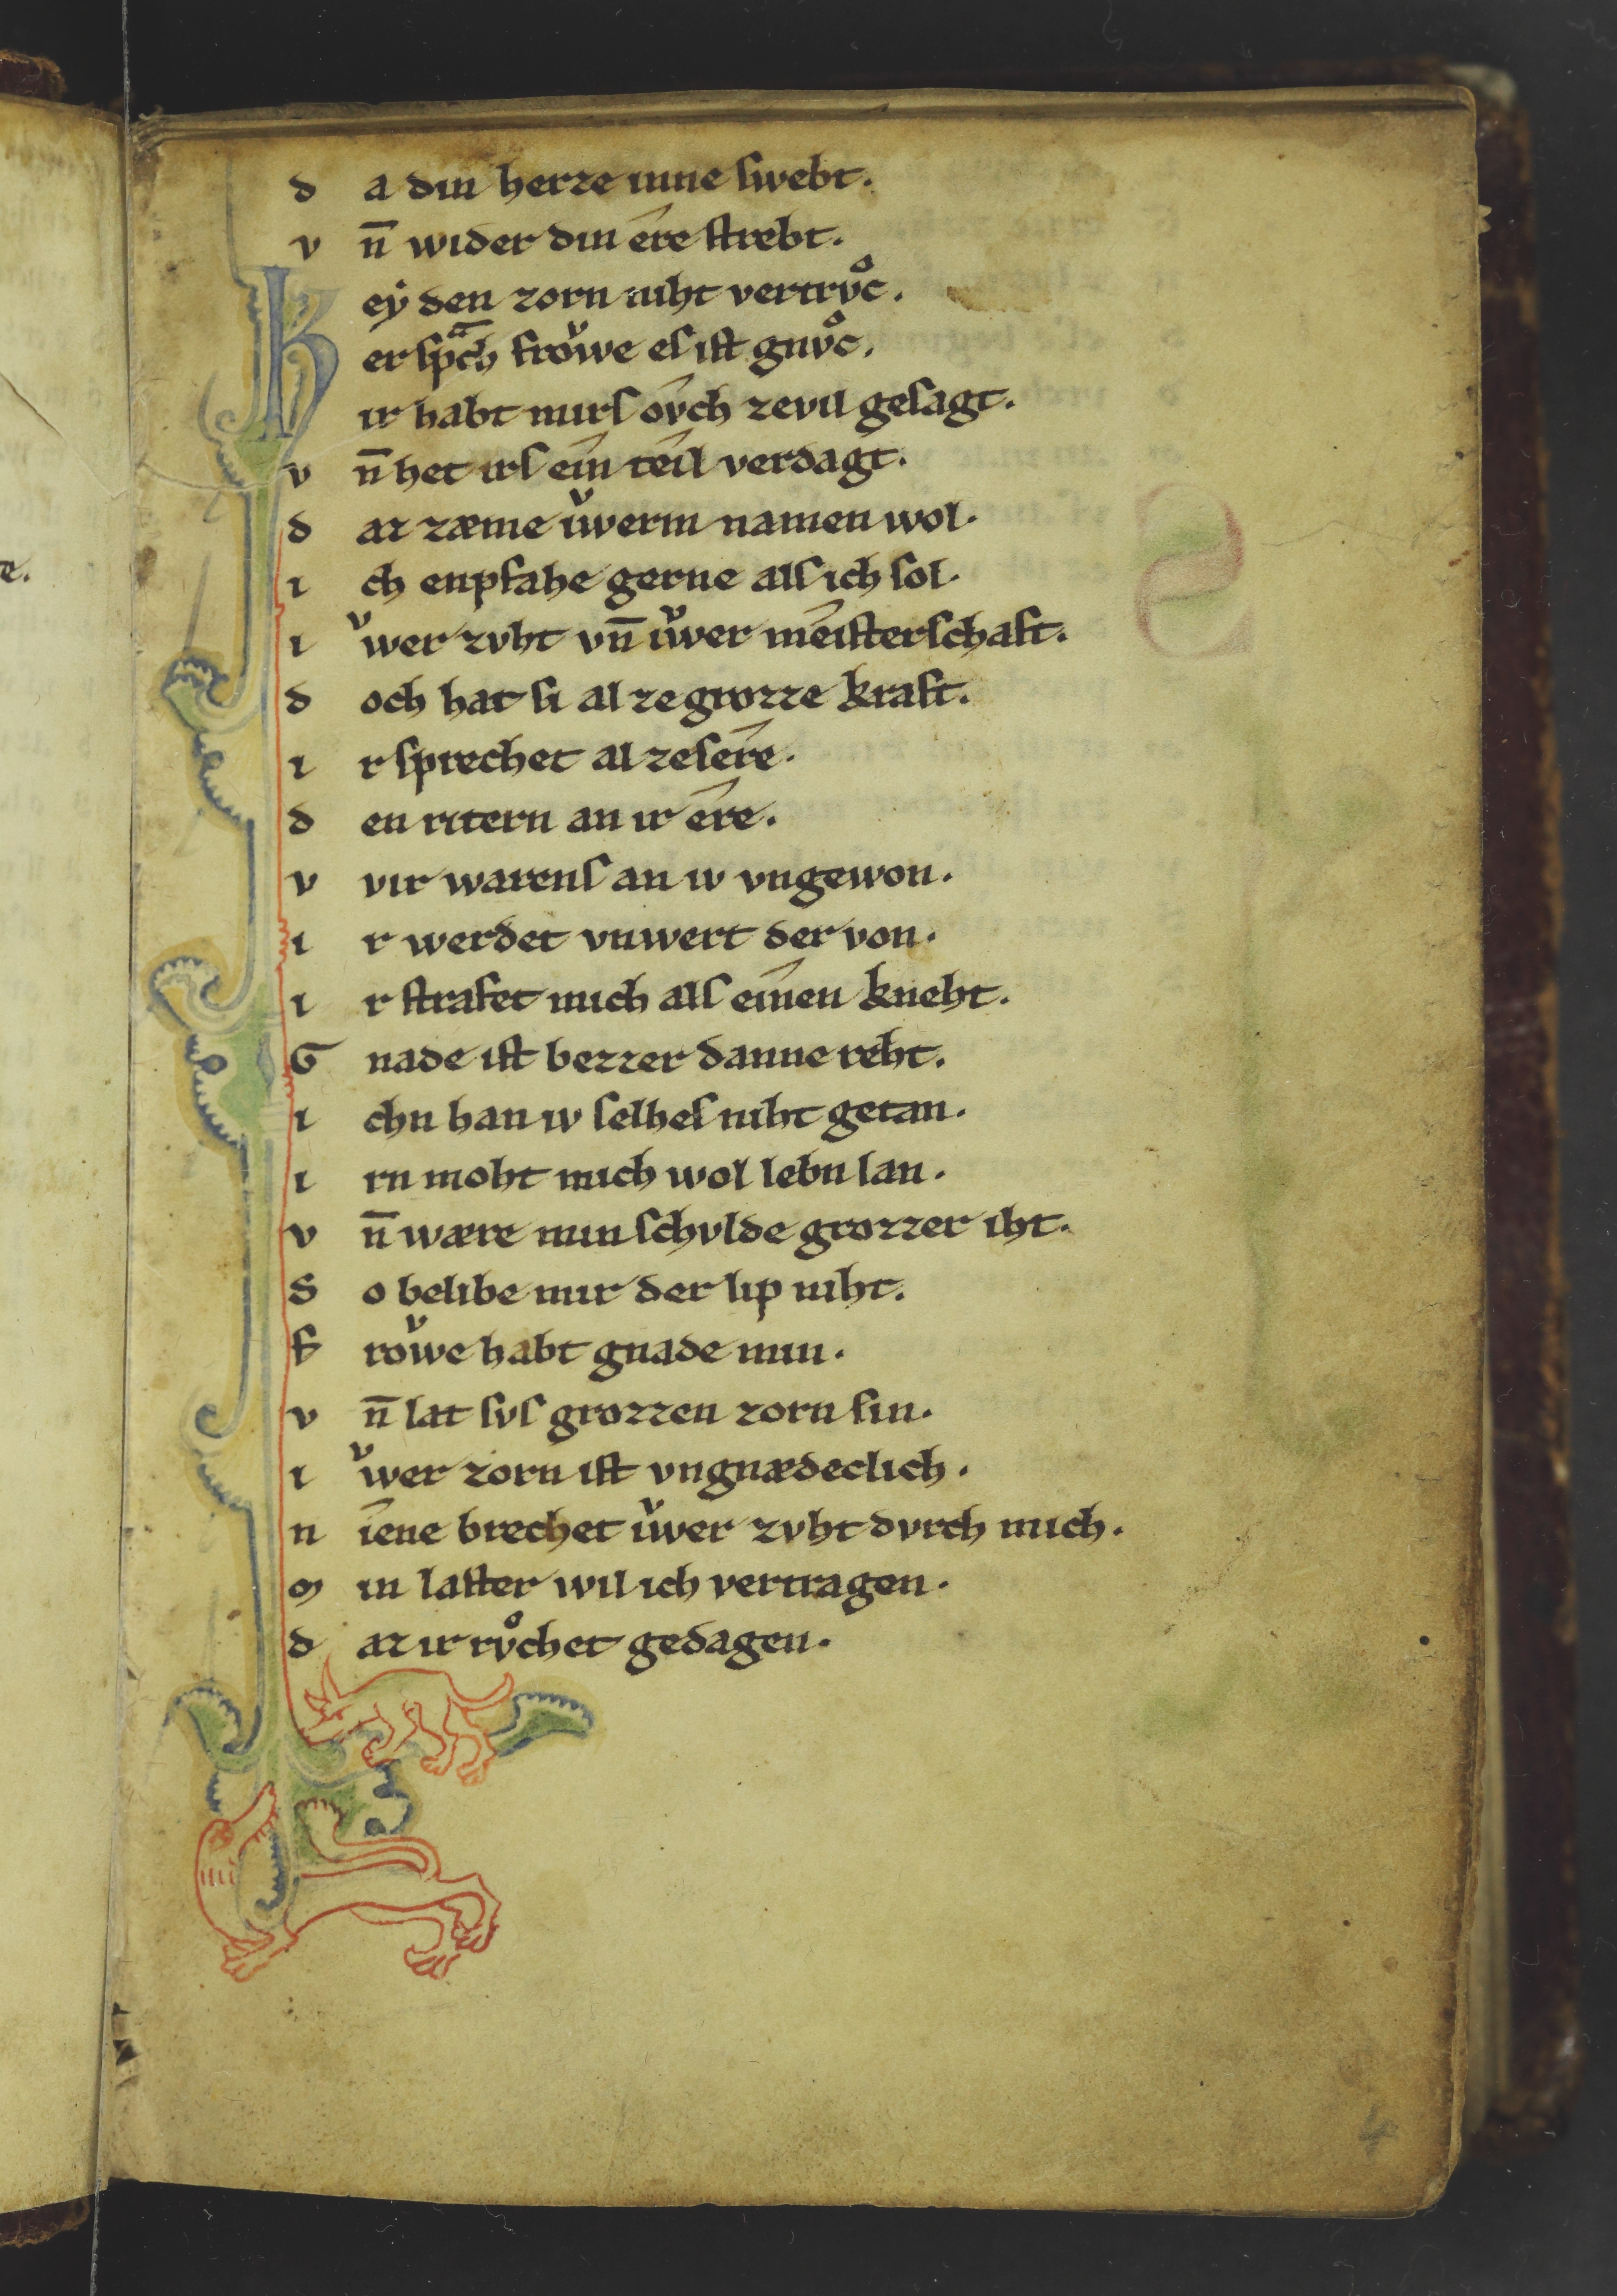 d a din herze inne swebt.
v n̄ wider din êre strebt.
K eẏ den zorn niht vertrvͦc.
er spͣch froͮwe es ist gnvͦc.
ir habt mirs oͮch zevil gesagt.
v n̄ het irs eîn teîl verdagt.
d az zæme iͮwerm namen wol.
i ch enpfahe gerne als ich sol.
i ͮwer zvht vn̄ iͮwer meîsterschaft.
d och hat si al ze grozze kraft.
i r sprechet al zesêre.
d en ritern an ir êre.
v vir warens an iv vngewon.
i r werdet vnwert der von.
i r strafet mich als eînen kneht.
G nade ist bezzer danne reht.
i chn han iv selhes niht getan.
i rn moht mich wol lebn lan.
v n̄ wære min schvlde grozzer iht.
S o belibe mir der lip niht.
f roͮwe habt gnade min.
v n̄ lat svs grozzen zorn sin.
i ͮwer zorn ist vngnædeclich.
n îene brechet iͮwer zvht dvrch mich.
m in laster wil ich vertragen.
d az ir rvͦchet gedagen.
4